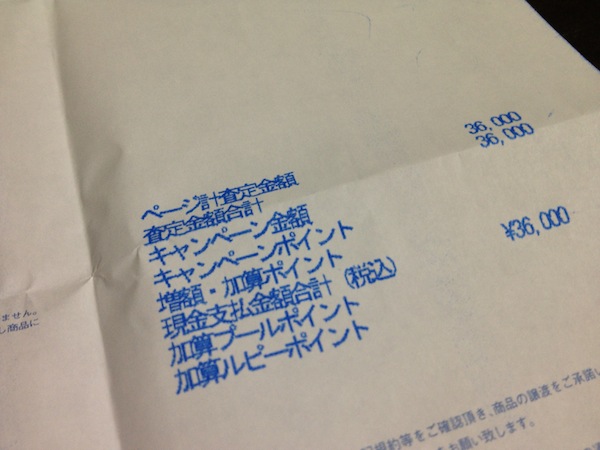 ページ計査定金額 36,000
査定金額合計 36,000
キャンペーン金額
キャンペーンポイント
増額・加算ポイント
現金支払金額合計 (税込) ¥36,000
加算プールポイント
加算ルピーポイント
ません。
し商品に
規約等をご確認頂き、商品の譲渡をご承諾い
お願い致します。